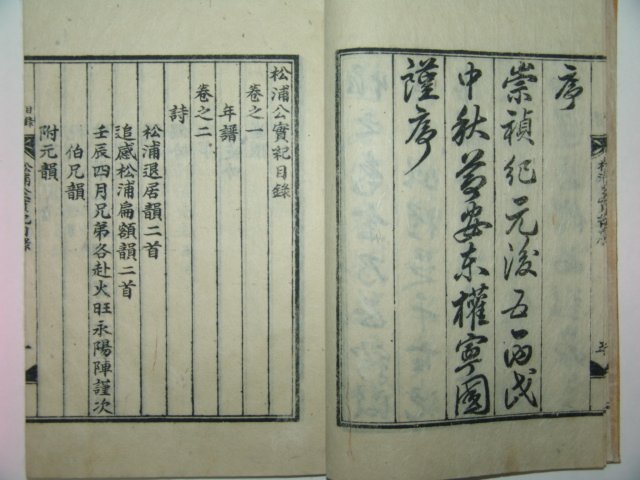 序
崇禎紀元後五丙戌
中秋節安東權寧
謹序
松浦公實紀目錄
卷之一
年譜
卷之二
詩
松浦退居韻二首
追感松浦扁額韻二首
壬辰四月兄弟各赴火旺永陽陣謹次
伯兄韻
附元韻
松浦公實紀目錄
目錄
一